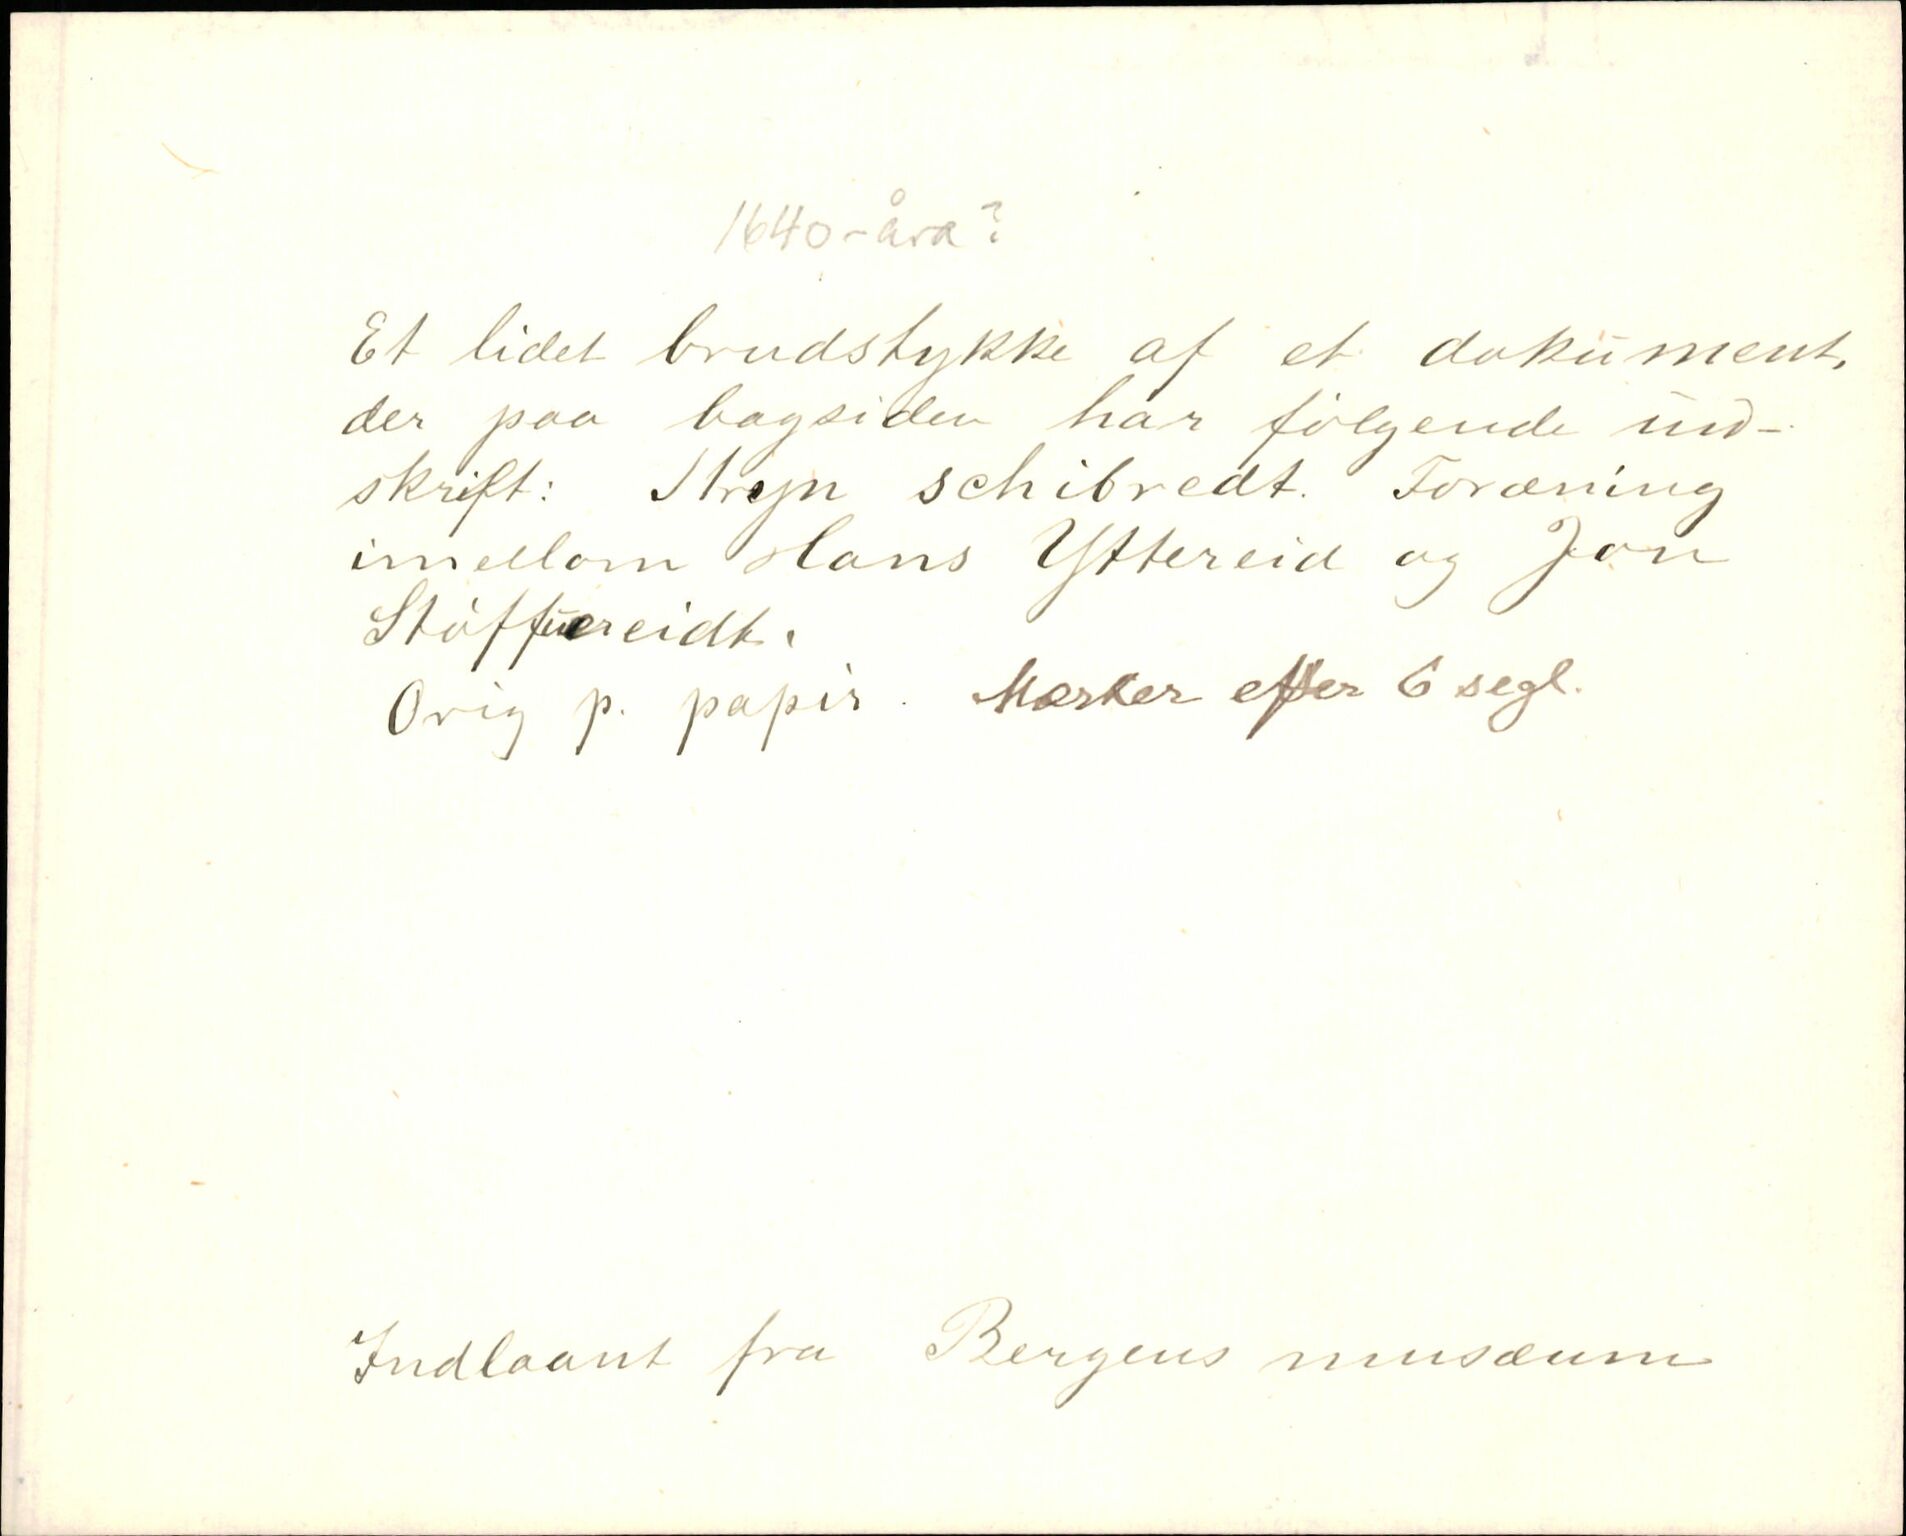 1640-åra?
Et lidet brudstykke af et dokument,
der paa bagsiden har følgende ind-
skrift: Stryn schibredt. Foræning
imellom Hans Yttereid og Jon
Støffuereidt.
Orig p. papir. Mærker efter 6 segl.
Indlaant fra Bergens musæum